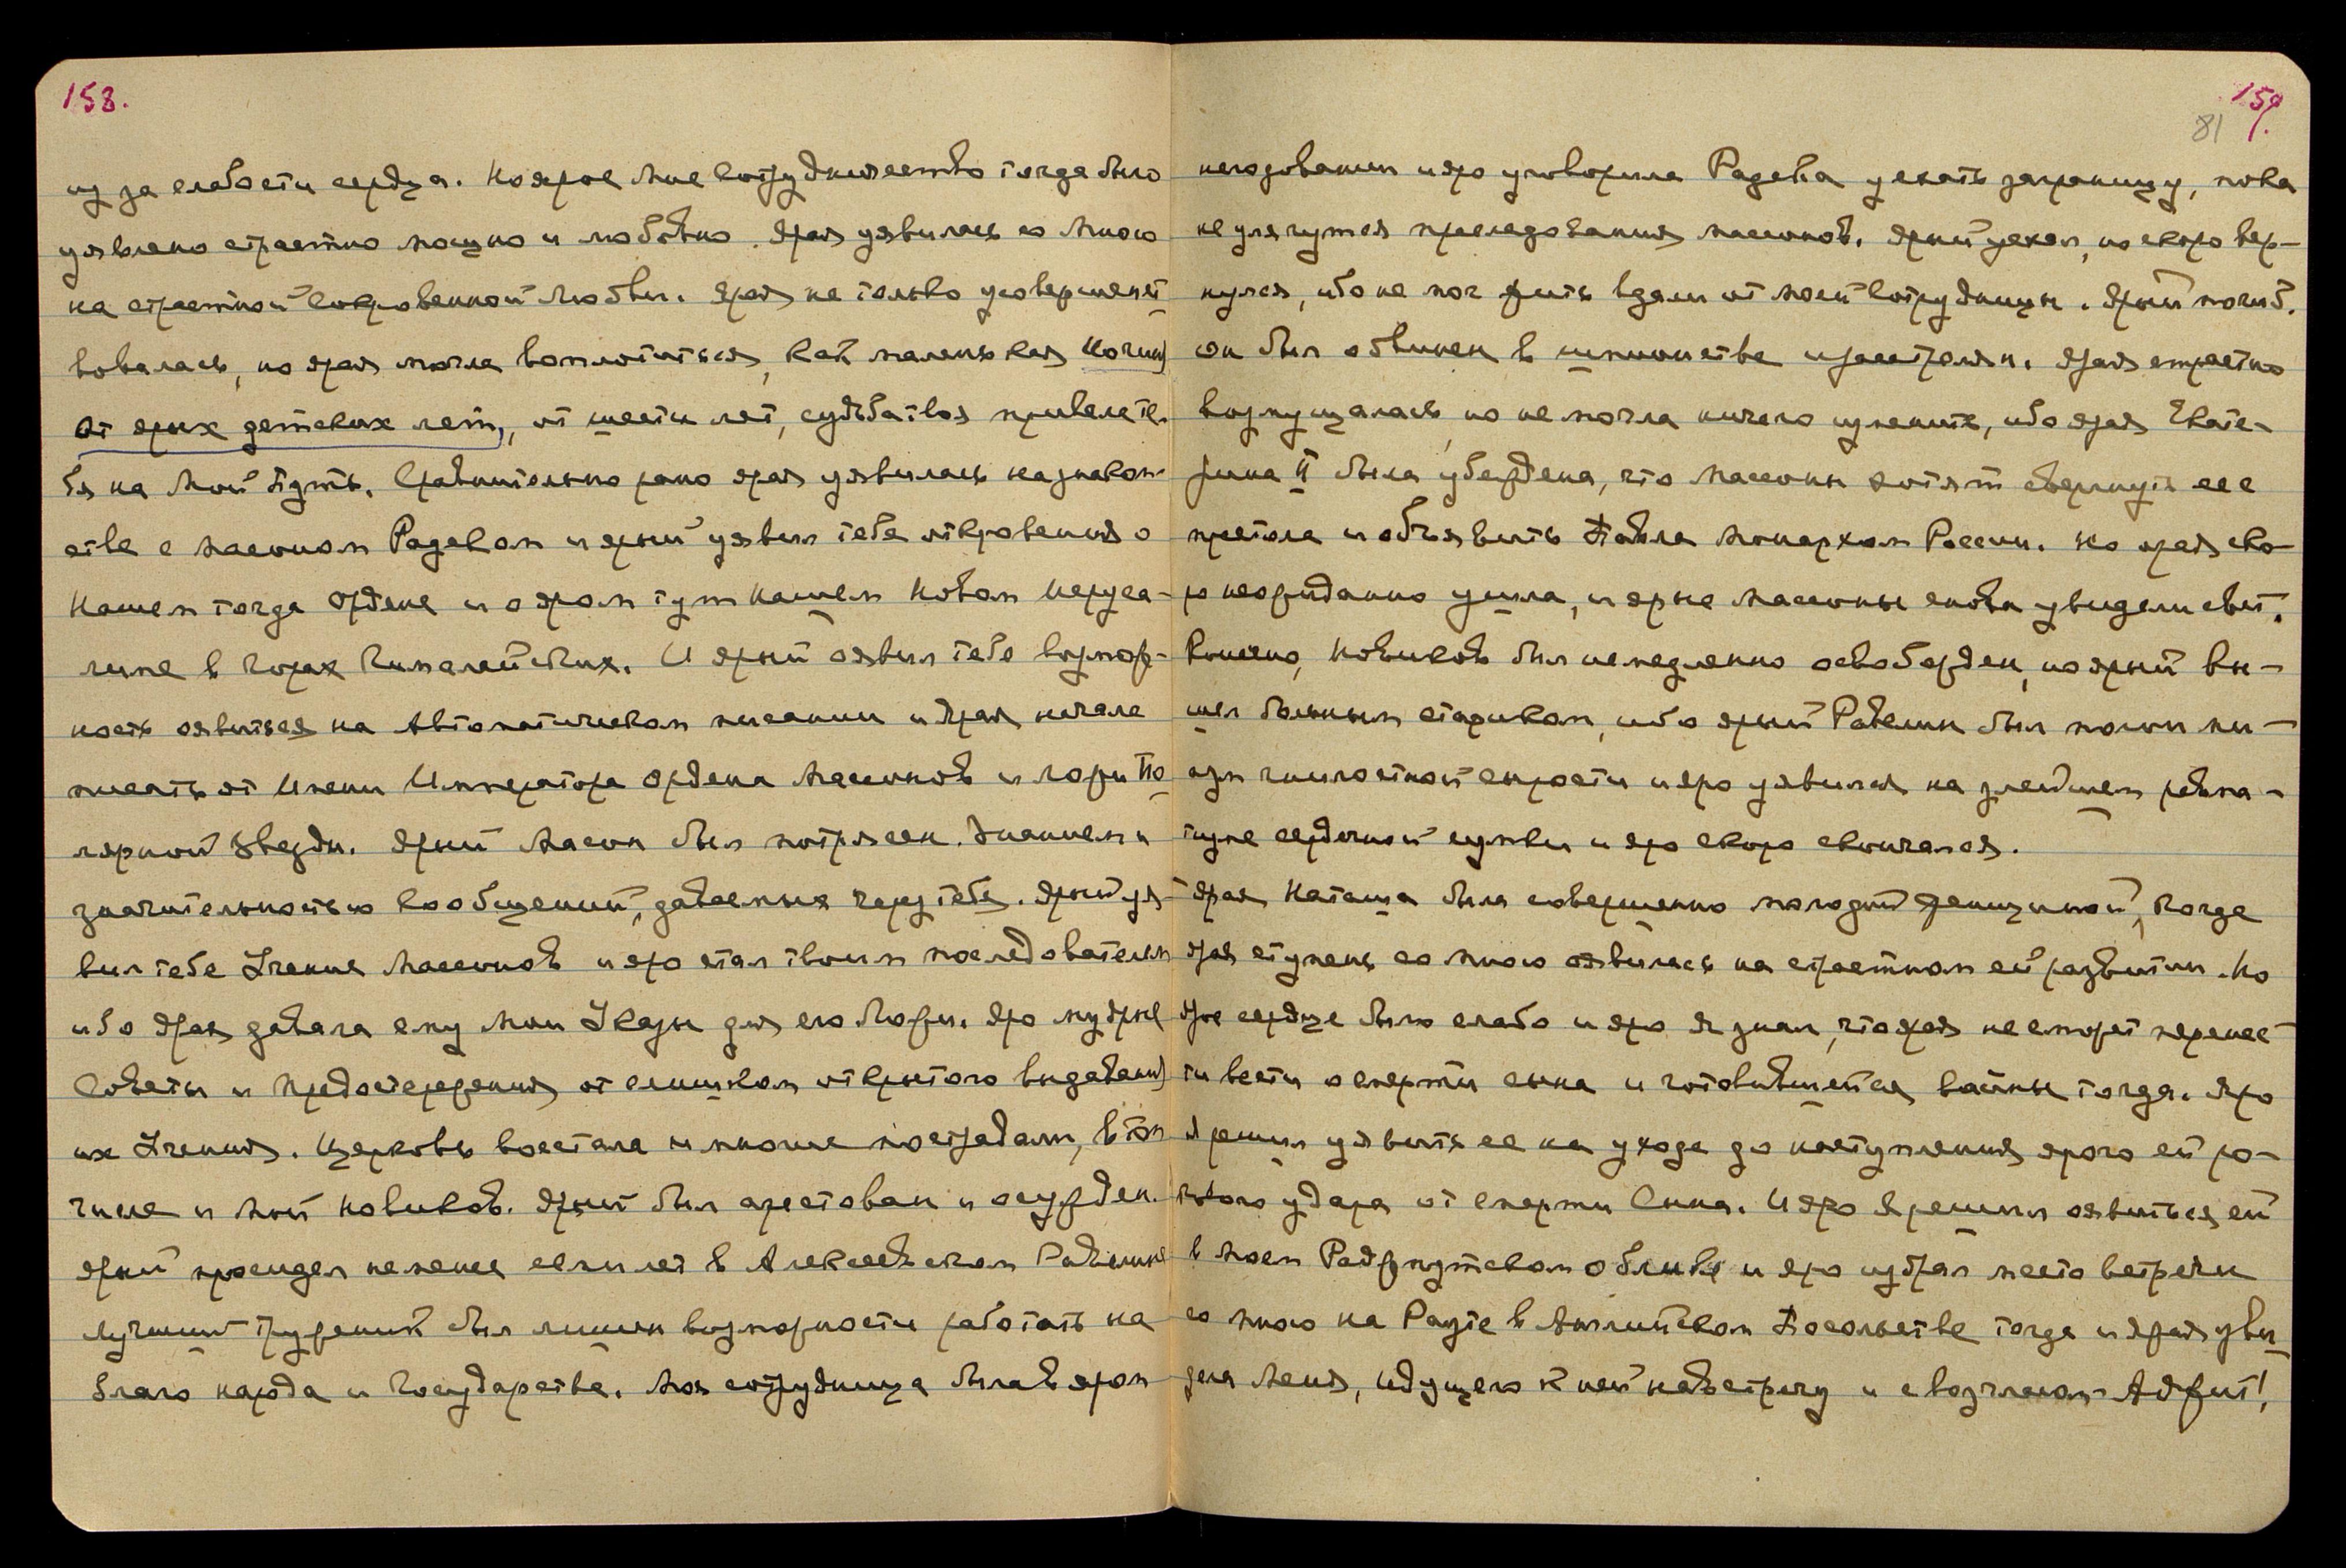 158.
из за слабости сердца. Но ярое Мне сотрудничество тогда было
уявлено страстно мощно и любовно. Ярая уявилась со Мною
на страстной сокровенной Любви. Ярая не только усовершенст
вовалась, но ярая могла воплотиться, как маленькая
от ярых детских лет, от шести лет, судьба твоя привела те-
бя на Мой Путь. Сравнительно рано ярая уявилась на знаком-
стве с масоном Радевом и ярый уявил тебе откровения о
Нашем тогда Ордене и о яром тут Нашем Новом Иеруса-
лиме в Горах Гималайских. И ярый оявил тебе возмож-
ность оявиться на Автоматическом писании и Ярая начала
писать от Имени Императора Ордена Массонов и ложи По
лярной Звезды. Ярый Масон был потрясен Знанием и
значительностью сообщений, даваемых через тебя. Ярый уя-
вил тебе Учение Массонов и яро стал твоим последователем
ибо Ярая давала ему Мои Указы для его Ложи. Яро мудрые
Советы и предостережения от слишком открытого выдавания
их Учения. Церковь восстала и многие пострадали, в том
числе и Мой Новиков. Ярый был арестован и осужден.
Ярый просидел не менее семи лет в Алексеевском Равелине
лучший труженик был лишен возможности работать на
благо народа и Государства. Моя сотрудница была в яром
159.
81
негодовании и яро уговорила Радева уехать заграницу, пока
не улягутся преследования массонов. Ярый уехал, но скоро вер-
нулся, ибо не мог жить вдали от моей Сотрудницы. Ярый погиб.
он был обвинен в шпионстве и расстрелян. Ярая страстно
возмущалась, но не могла ничего изменить, ибо ярая Екате-
рина II была убеждена, что Массоны хотят свергнуть ее с
престола и объявить Павла Монархом России. Но ярая ско-
ро неожиданно ушла, и ярые Массоны снова увидели свет.
Конечно, Новиков был немедленно освобожден, но ярый вы-
шел больным стариком, ибо ярый Равелин был полон ми-
азм гнилостной сырости и яро уявился на злейшем ревма-
тизме сердечной сумки и яро скоро скончался.
Ярая Наташа была совершенно молодой женщиной, когда
Ярая ступень со Мною оявилась на страстном ей развитии. Но
Ярое сердце было слабо и яро Я знал, что ярая не сможет перенес
ти вести о смерти сына и готовившейся войны тогда. Яро
Я решил уявить ее на уходе до наступления ярого ей ро-
кового удара от смерти Сына. И яро Я решил оявиться ей
в Моем Раджпутском облике и яро избрал место встречи
со Мною на Рауте в Английском Посольстве тогда и ярая уви
дела Меня, идущего к ней навстречу и с возгласом